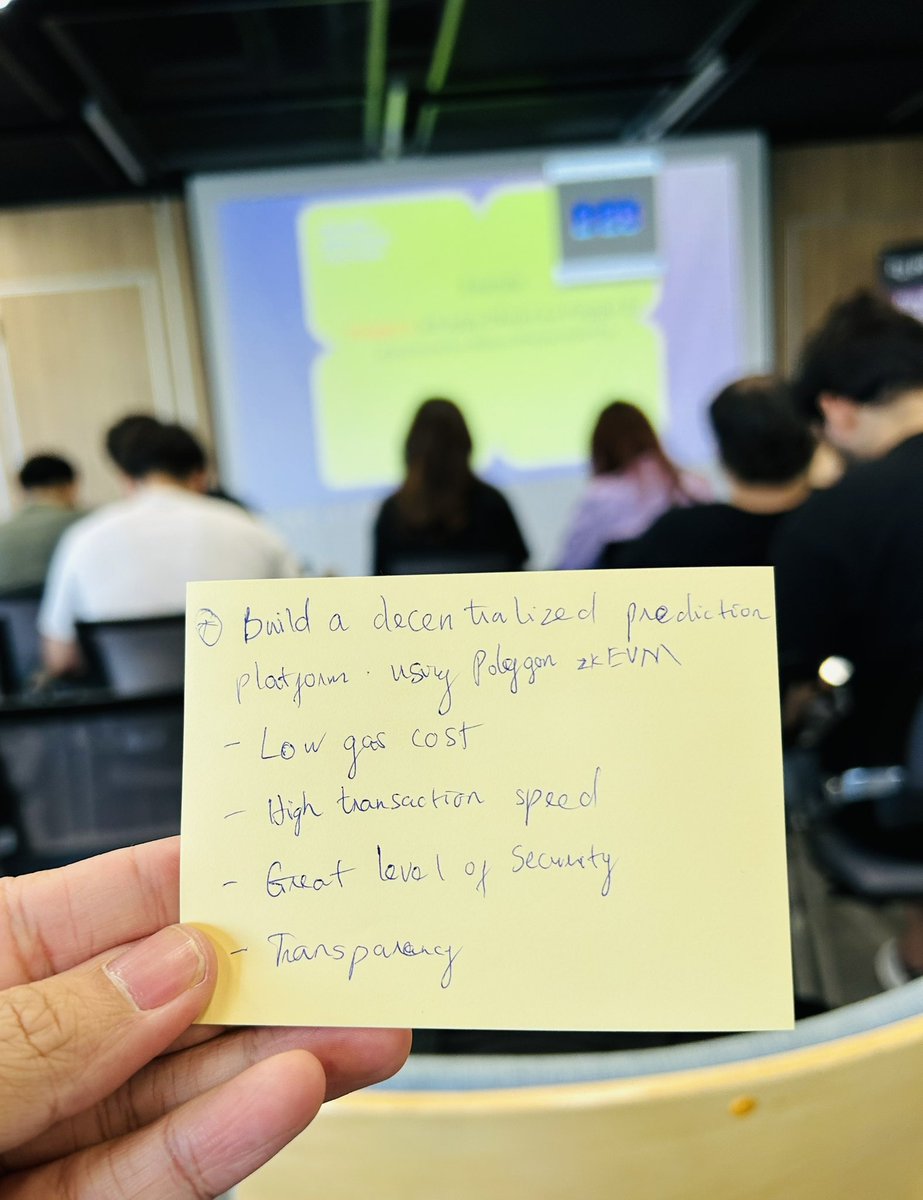 ⊕ Build a decentralized prediction
platform . using Polygon zkEVM
- Low gas cost
- High transaction speed
- Great level of Security
- Transparency